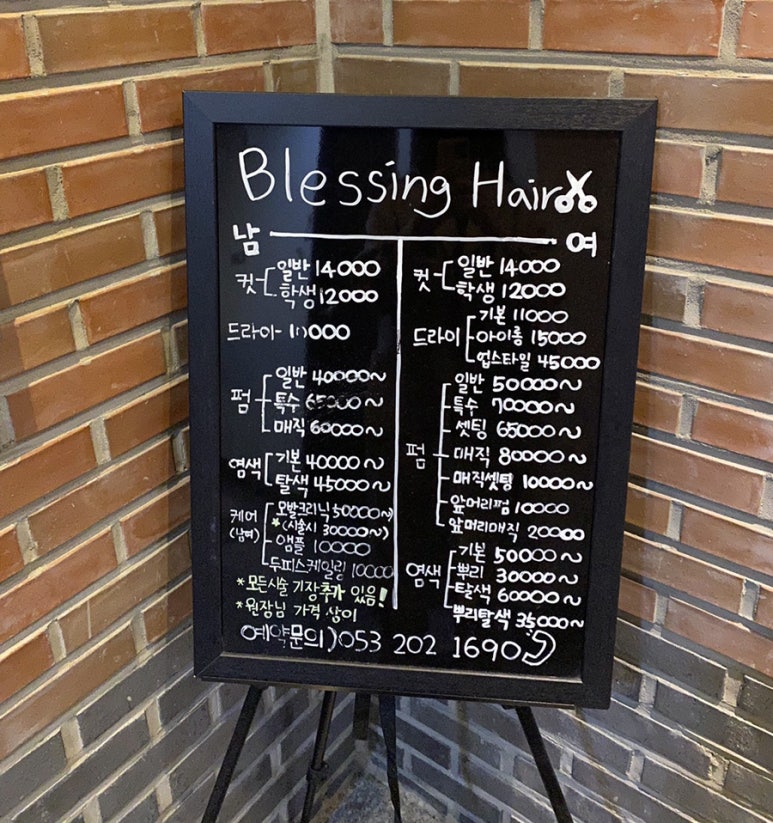 Blessing Hair
남 여
컷 일반 14000
학생 12000
드라이- 11000
펌 일반 40000~
특수 65000~
매직 60000~
염색 기본 40000~
탈색 45000~
케어 (남여) 모발크리닉 50000~
*(시술시 30000~)
앰플 10000
두피스케일링 10000
*모든시술 기장추가 있음!
*원장님 가격 상이
컷 일반 14000
학생 12000
드라이 기본 11000
아이롱 15000
업스타일 45000
펌 일반 50000~
특수 70000~
셋팅 65000~
매직 80000~
매직셋팅 10000~
앞머리펌 10000
앞머리매직 20000
염색 기본 50000~
뿌리 30000~
탈색 60000~
뿌리탈색 35000~
예약문의)053 202 1690